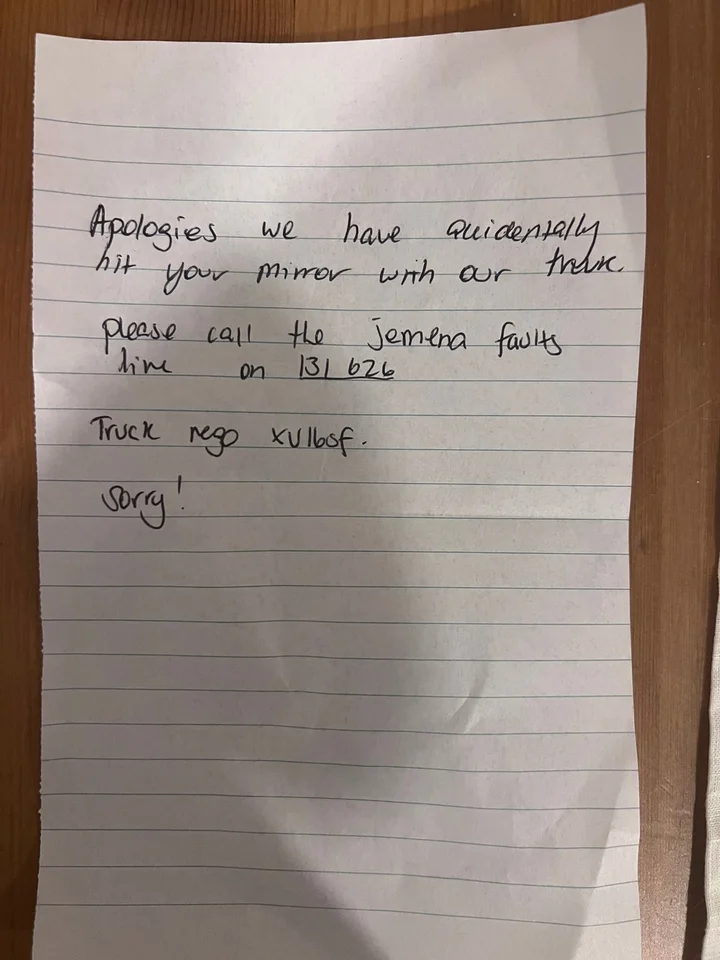 Apologies we have auidentally
hit your mirror with our truck.
please call the jemena faults
line on 131 626
Truck rego XV16sf.
Sorry!